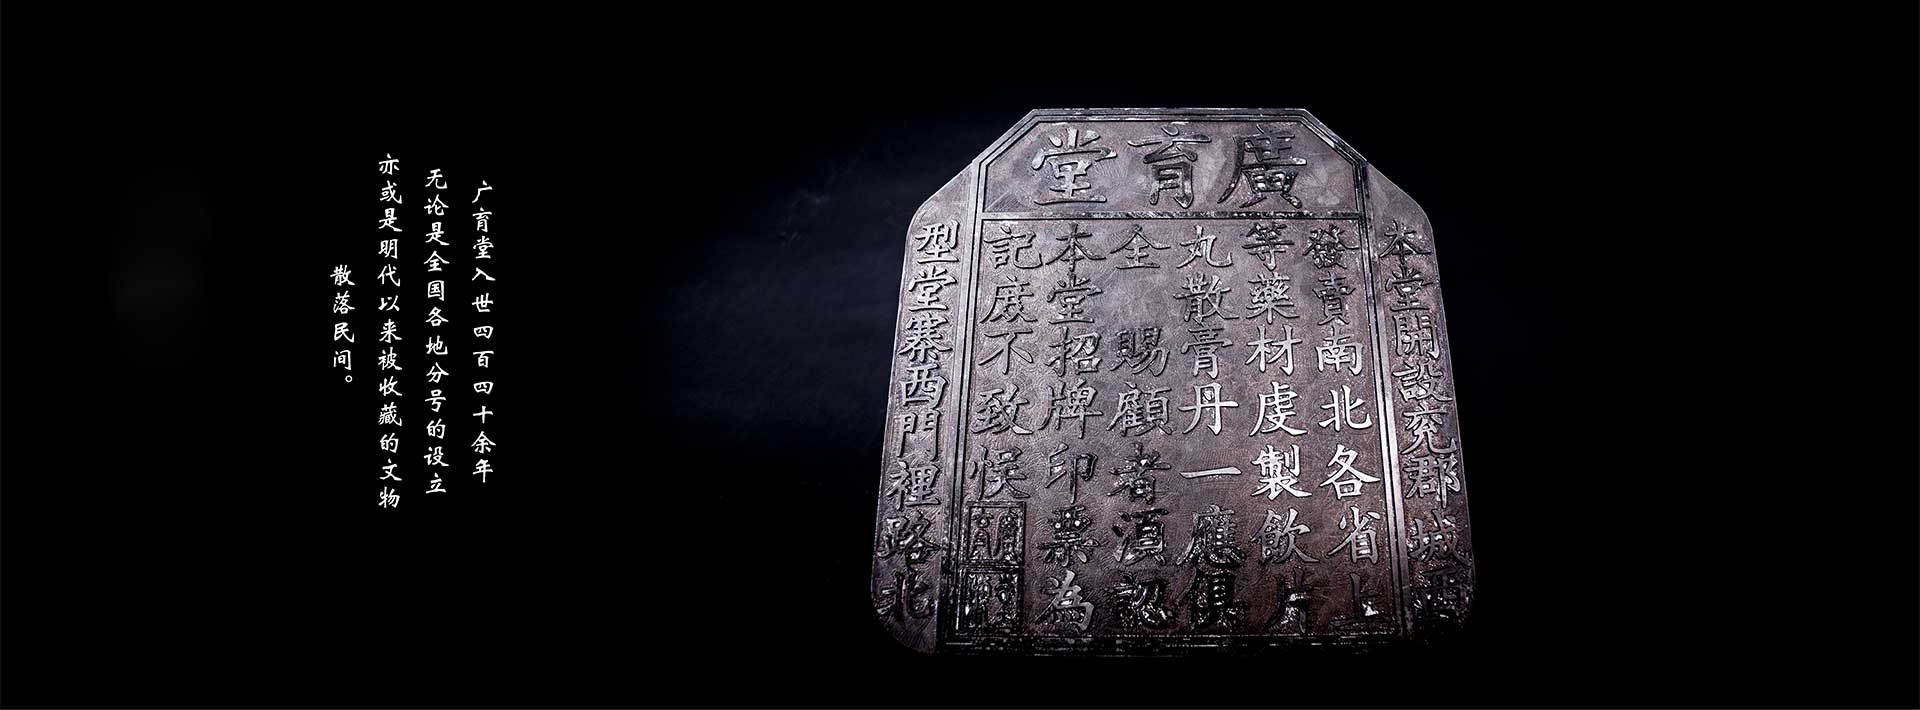 广育堂入世四百四十余年
无论是全国各地分号的设立
亦或是明代以来被收藏的文物
散落民间。
廣育堂
本堂開設兖郡城西
發賣南北各省上
等藥材虔製飲片
丸散膏丹一應俱
全 賜顧者須認
本堂招牌印票為
記庶不致悮
型堂寨西門裡路北